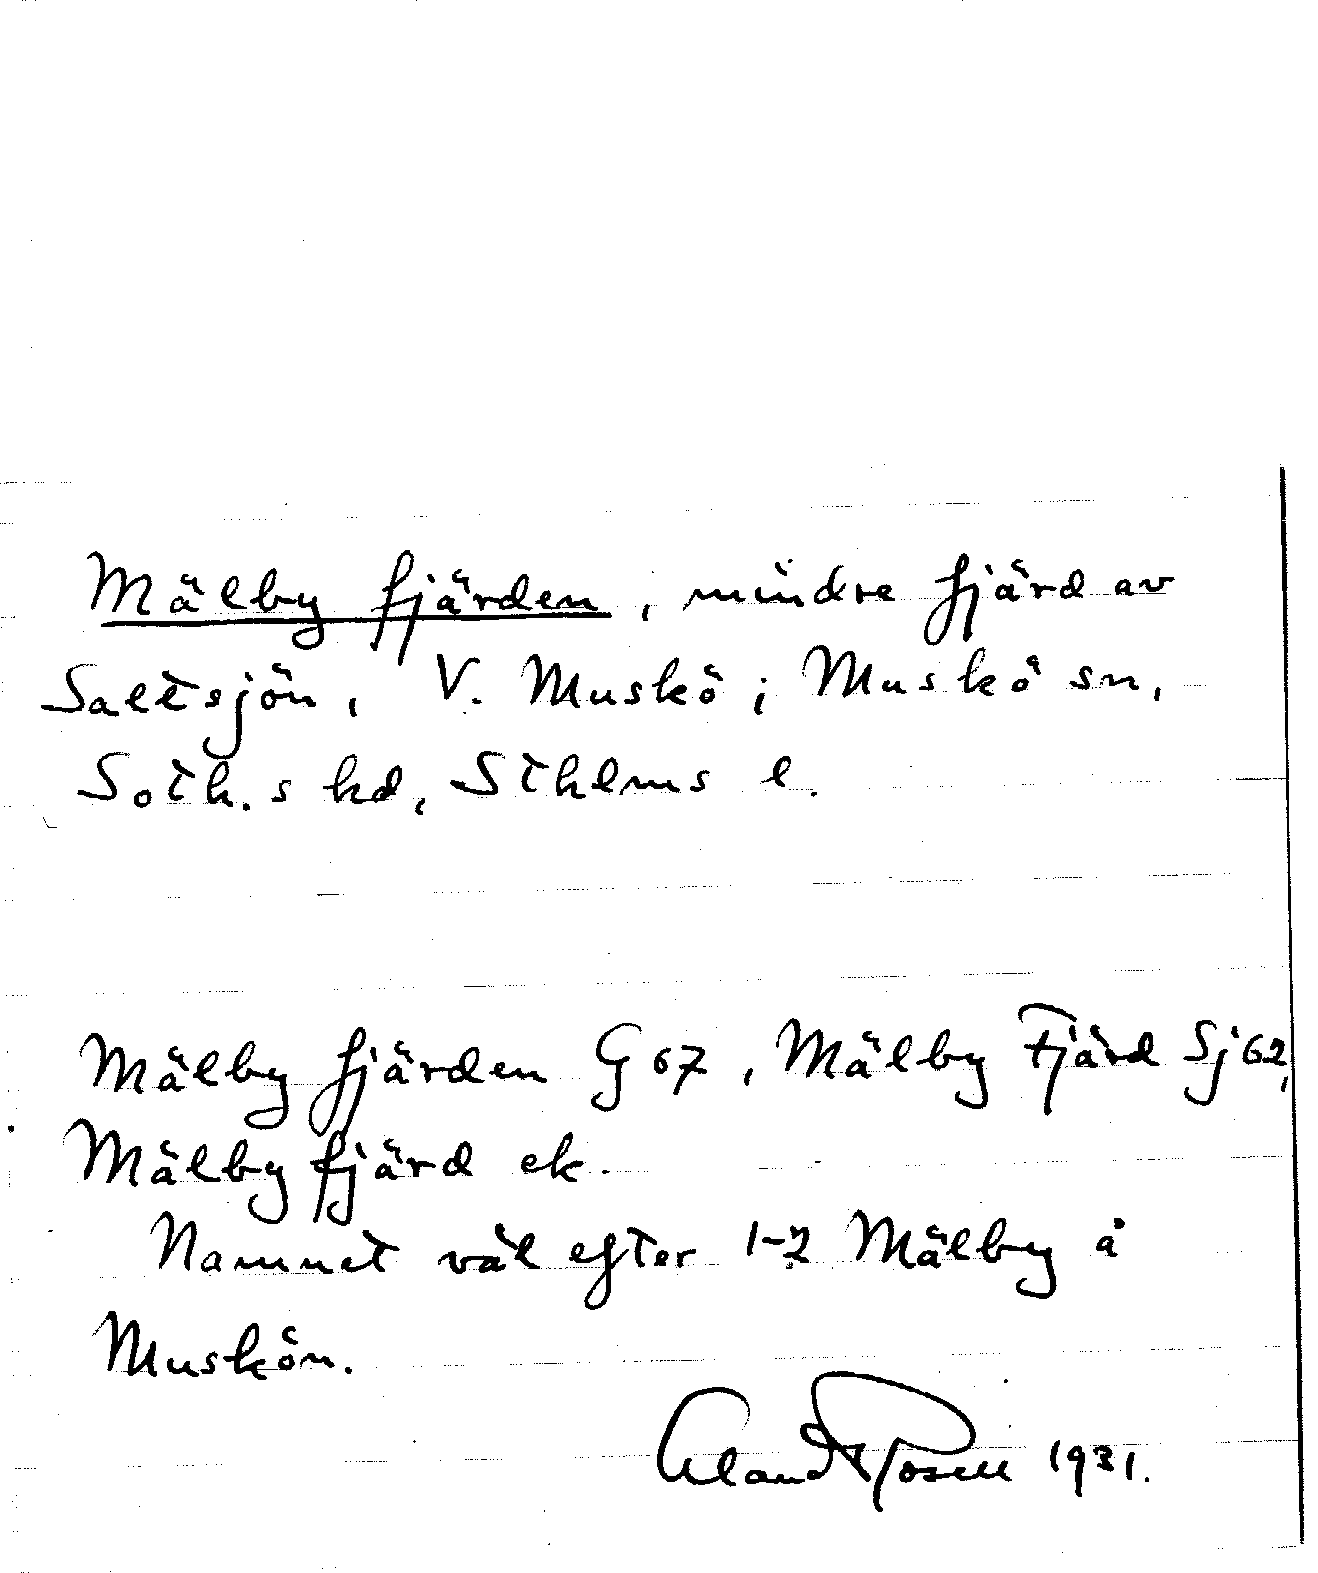 Mälby fjärden, mindre fjärd av
Saltsjön, V. Muskö; Muskö sn,
Soth.s hd, Sthlms l.
Mälby fjärden G 67, Mälby Fjärd Sj 62,
Mälby fjärd ek.
Namnet väl efter 1-2 Mälby å
Muskön.
Erland Rosell 1931.